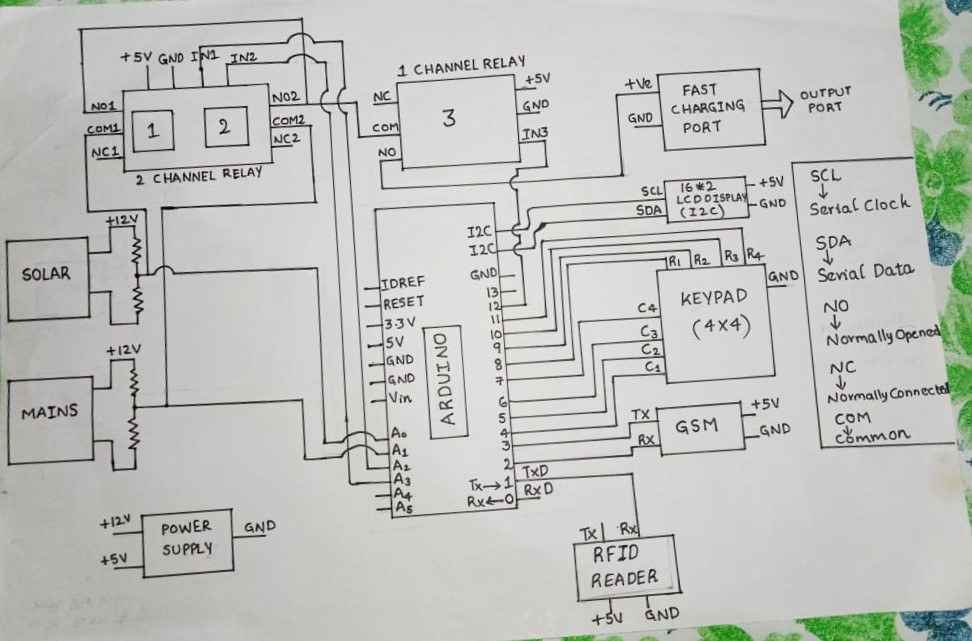 +5V GND IN1 IN2
NO1
COM1
NC1
1 2
NO2
COM2
NC2
2 CHANNEL RELAY
1 CHANNEL RELAY
NC
COM
NO
3
+5V
GND
IN3
+Ve
GND
FAST
CHARGING
PORT
OUTPUT
PORT
SCL
SDA
16*2
LCD DISPLAY
(I2C)
+5V
GND
SCL
↓
Serial Clock
SDA
↓
Serial Data
NO
↓
Normally Opened
NC
↓
Normally Connected
COM
↓
Common
+12V
SOLAR
+12V
MAINS
+12V
+5V
POWER
SUPPLY
GND
ARDUINO
IDREF
RESET
3.3V
5V
GND
GND
Vin
A0
A1
A2
A3
A4
A5
I2C
I2C
GND
13
12
11
10
9
8
7
6
5
4
3
2
Tx→1
Rx←0
TxD
RxD
R1 R2 R3 R4
C4
C3
C2
C1
KEYPAD
(4X4)
GND
TX
RX
GSM
+5V
GND
Tx Rx
RFID
READER
+5V GND